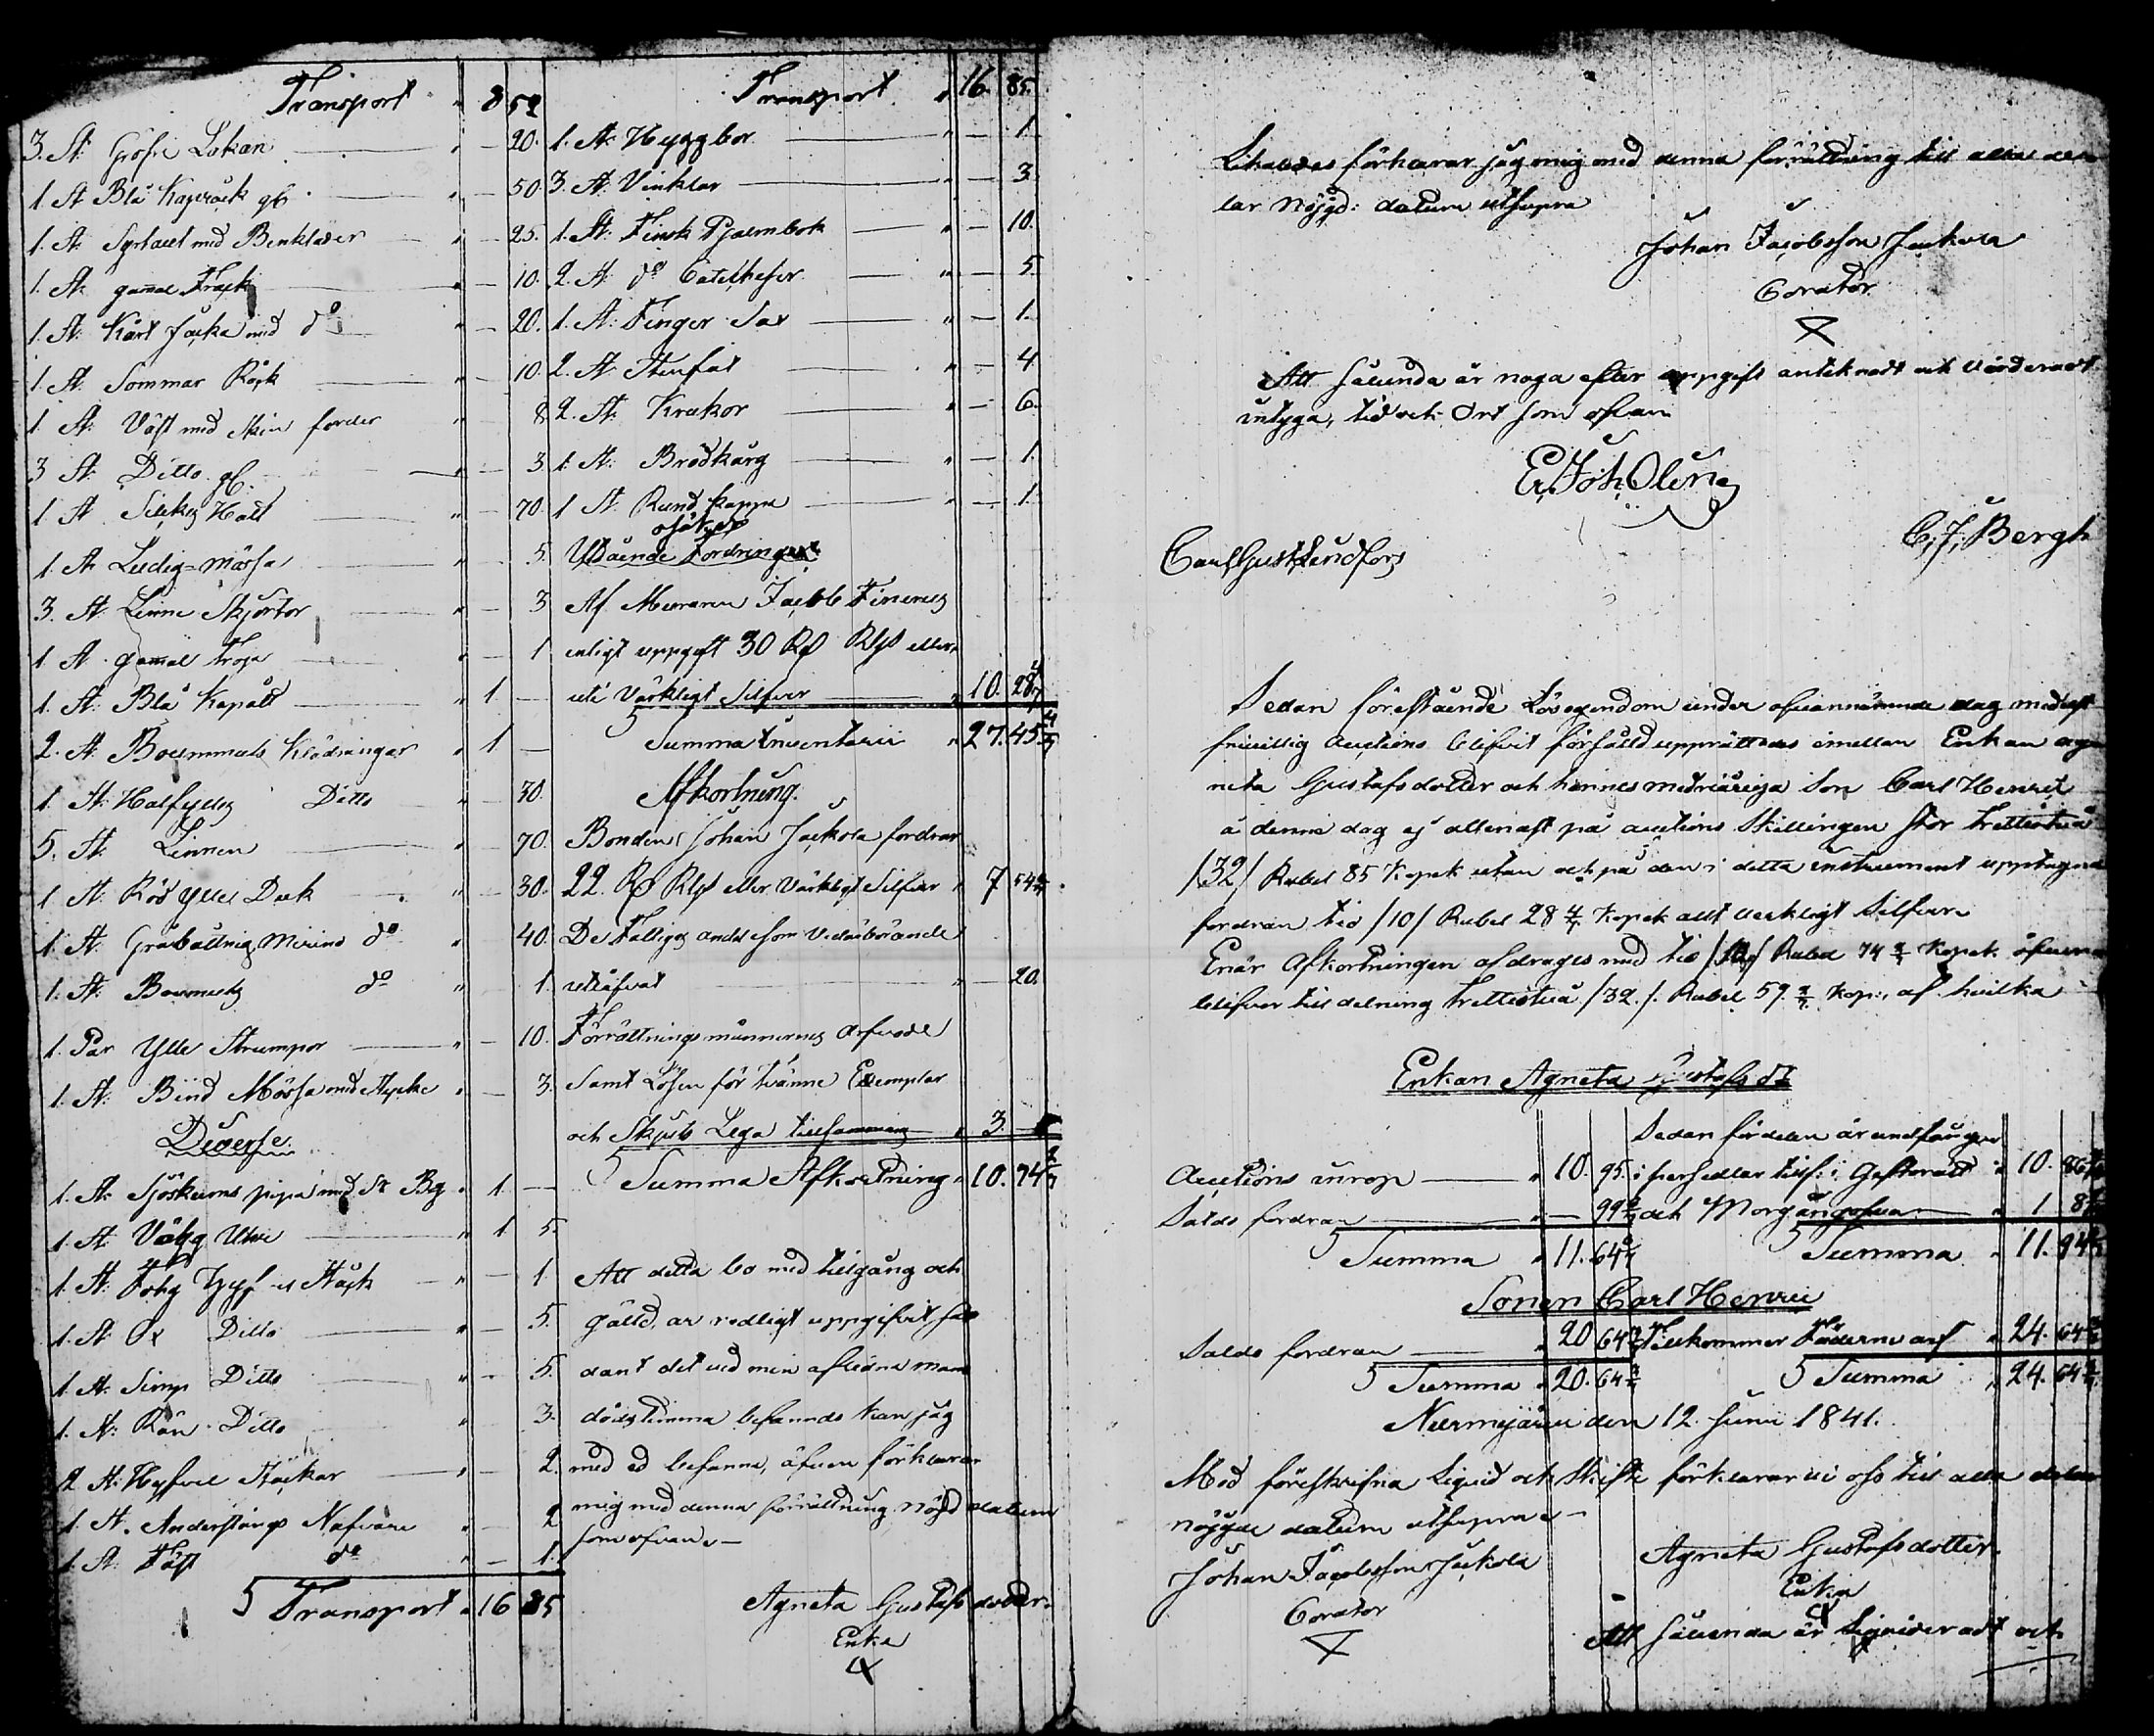 Transport " 8 52
3. St: Grofve Lakan " — 20.
1. St Blå Kapråck gl. " — 50
1. St. Syrtout med Benkläder " — 25.
1. St. gamal Frack " — 10.
1. St: Kort Jacka med do " — 20.
1. St. Sommar Råck " — 10
1. St: Väst med skin foder " 8
3 St: Ditto gl. " — 3
1 St Silkes Hatt " — 70.
1. St Ludig-mössa " — 5.
3. St. Linne Skjortor " — 3
1. St. gamal Tröja " — 1
1. St: Blå Kapått " 1 —
2. St. Boummuls Klädningar " 1 —
1. St: Halfylles Ditto " — 30.
5. St. Linnen " — 70.
1 St. Röd Ylle Duk " — 30.
1. St. Gråbåttnig Merino do " 40.
1. St: Boumuls do " 1.
1. Par Ylle Strumpor " — 10.
1. St: Bind Mössa med stycke " — 3.
Diverse.
1. St: Sjöskums pipa med Sr Bg " 1 —
1. St Vägg Uhr " 1 5.
1. St: Fog Hyfvel Stäck " — 1.
1. St Ditto " — 5.
1. St. Simp Ditto " — 5.
1. St: Rän Ditto " 3.
2 St: Hyfvel Stäckar " — 2.
1. St. Anderstångs Nafvare " — 2
1. St: Fäst do " — 1.
Transport " 16 85
Transport " 16. 85.
1. St: Hyggbor " — 1
3. St: Vinklar " — 3.
1. St: Finsk Psalmbok " — 10.
2. St: do Catekheser " — 5
1. St: Finger Sax " — 1.
2. St: Stenfat " — 4
2. St: Krukor " — 6.
1. St: Brödkårg " — 1
1 St. Rund kappa " — 1
osäkra
Utstående Fordringar.
Af Muraren Jacob Finerus
enligt uppgift 30 Rd Rgs eller
uti Värkligt Silfver " 10. 28 4/7
Summa Inventarii " 27. 45 4/7
Afkortning.
Bonden Johan Jackola fordrar
22. Rd Rgs eller Värkligt Silfver " 7 54 2/7
De Fattiges andel som vederbörande
utåfvat " — 20.
Förrättningsmännernes Arfvode
samt Lösen för tvänne Exemplar
och Skjuts Lega tillsammans " 3. —
Summa Afkortning " 10. 74 2/7
Att detta bo med tillgång och
gälld, är redligt uppgifvit så
dant det vid min aflidna mans
dödstimma befanns kan jag
med ed besanna, äfven förklarar
mig med denna förrättning nöjd datum
som ofvan. —
Agneta Gustafsdotter.
Enka
X
Likaledes förklarar jag mig med denna förrättning till alla de
lar nöjgd: datum utsupra
Johan Jacobsson Jackola
Corator
X
Att sålunda är noga efter uppgift anteknadt och värderadt
intyga, tid och Ort som ofvan
Er. Joh. Olenis
C. J. Bergh
Carl Gust Lindfors
Sedan förestående Lösegendom under ofvannämnde dag medelst
frivillig auctions blifvit försåld upprättades imellan Enkan Ag
neta Gustafsdotter och hennes medvårdiga Son Carl Henric
å denne dag ej allenast på auctions Skillingen stor trettiotvå
/32/ Rubel 85 Kopek utan och på den i detta instrument upptagne
fordran tio /10/ Rubel 28 4/7 Kopek allt verkligt Silfver
Enär Afkortningen afdrages med tio /10/ Rubel 74 2/7 Kopek öfver
blifver till delning trettiotvå /32./. Rubel 59. 2/7 Kop:, af hvilka
Enkan Agneta Gustafsdr
Sedan fördelen är undfången
Auctions inrop " 10. 95. i persedlar till: i Gifterätt " 10. 86
Saldo fordran " — 99 och Morgongåfva " 1 8
Summa " 11. 64 Summa " 11. 94
Sonen Carl Henric
Saldo fordran " 20 64 Tillkommer Fäderne arf " 24. 64
Summa " 20. 64 Summa " 24. 64
Nurmijärvi den 12. Junii 1841.
Med föreskrifna Liqvid och Skifte förklarar vi oss till alla delar
nöjgde datum utsupra. —
Johan Jacobsson Jackola
Corator
X
Agneta Gustafsdotter.
Enka
X
Att sålunda är Liqvideradt och